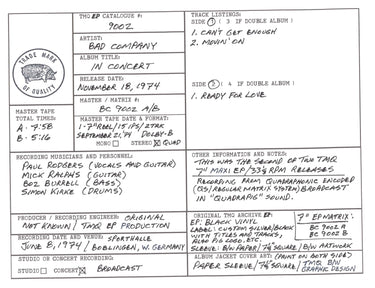 TRADE MARK
OF QUALITY
MASTER TAPE
TOTAL TIMES:
A: 7:58
B: 5:16
TMQ EP CATALOGUE #:
9002
ARTIST:
BAD COMPANY
ALBUM TITLE:
IN CONCERT
RELEASE DATE:
NOVEMBER 18, 1974
MASTER / MATRIX #:
BC 9002 A/B
MASTER TAPE DATE & FORMAT:
1-7"REEL/15 IPS/2TRK
SEPTEMBER 21, '74 DOLBY-B
MONO STEREO QUAD
TRACK LISTINGS:
SIDE 1 ( 3 IF DOUBLE ALBUM )
1. CAN'T GET ENOUGH
2. MOVIN' ON
SIDE 2 ( 4 IF DOUBLE ALBUM )
1. READY FOR LOVE
RECORDING MUSICIANS AND PERSONNEL:
PAUL RODGERS (VOCALS AND GUITAR)
MICK RALPHS (GUITAR)
BOZ BURRELL (BASS)
SIMON KIRKE (DRUMS)
OTHER INFORMATION AND NOTES:
THIS WAS THE SECOND OF TEN TMQ
7" MAXI EP/33⅓ RPM RELEASES
RECORDING FROM QUADRAPHONIC ENCODED
(QS/REGULAR MATRIX SYSTEM) BROADCAST
IN "QUADRAPIG" SOUND.
PRODUCER / RECORDING ENGINEER: ORIGINAL
NOT KNOWN / TMQ EP PRODUCTION
RECORDING DATE AND VENUE: SPORTHALLE
JUNE 8, 1974 / BOBLINGEN, W. GERMANY
STUDIO OR CONCERT RECORDING:
STUDIO CONCERT BROADCAST
ORIGINAL TMQ ARCHIVE EP:
EP: BLACK VINYL
LABEL: CUSTOM SILVER/BLACK
WITH TITLES AND TRACKS,
ALSO PIG LOGO, ETC.
SLEEVE: B/W PAPER/7¼" SQUARE/B/W ARTWORK
7" EP MATRIX:
BC 9002 A
BC 9002 B
ALBUM JACKET COVER ART: (PRINT ON BOTH SIDE)
PAPER SLEEVE/7¼" SQUARE/ TMQ B/W
GRAPHIC DESIGN